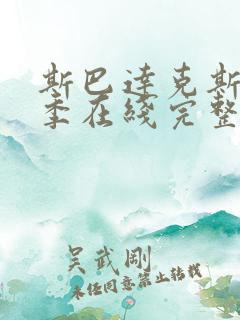 斯巴达克斯
季在线完整
吴武刚
未经同意禁止转载